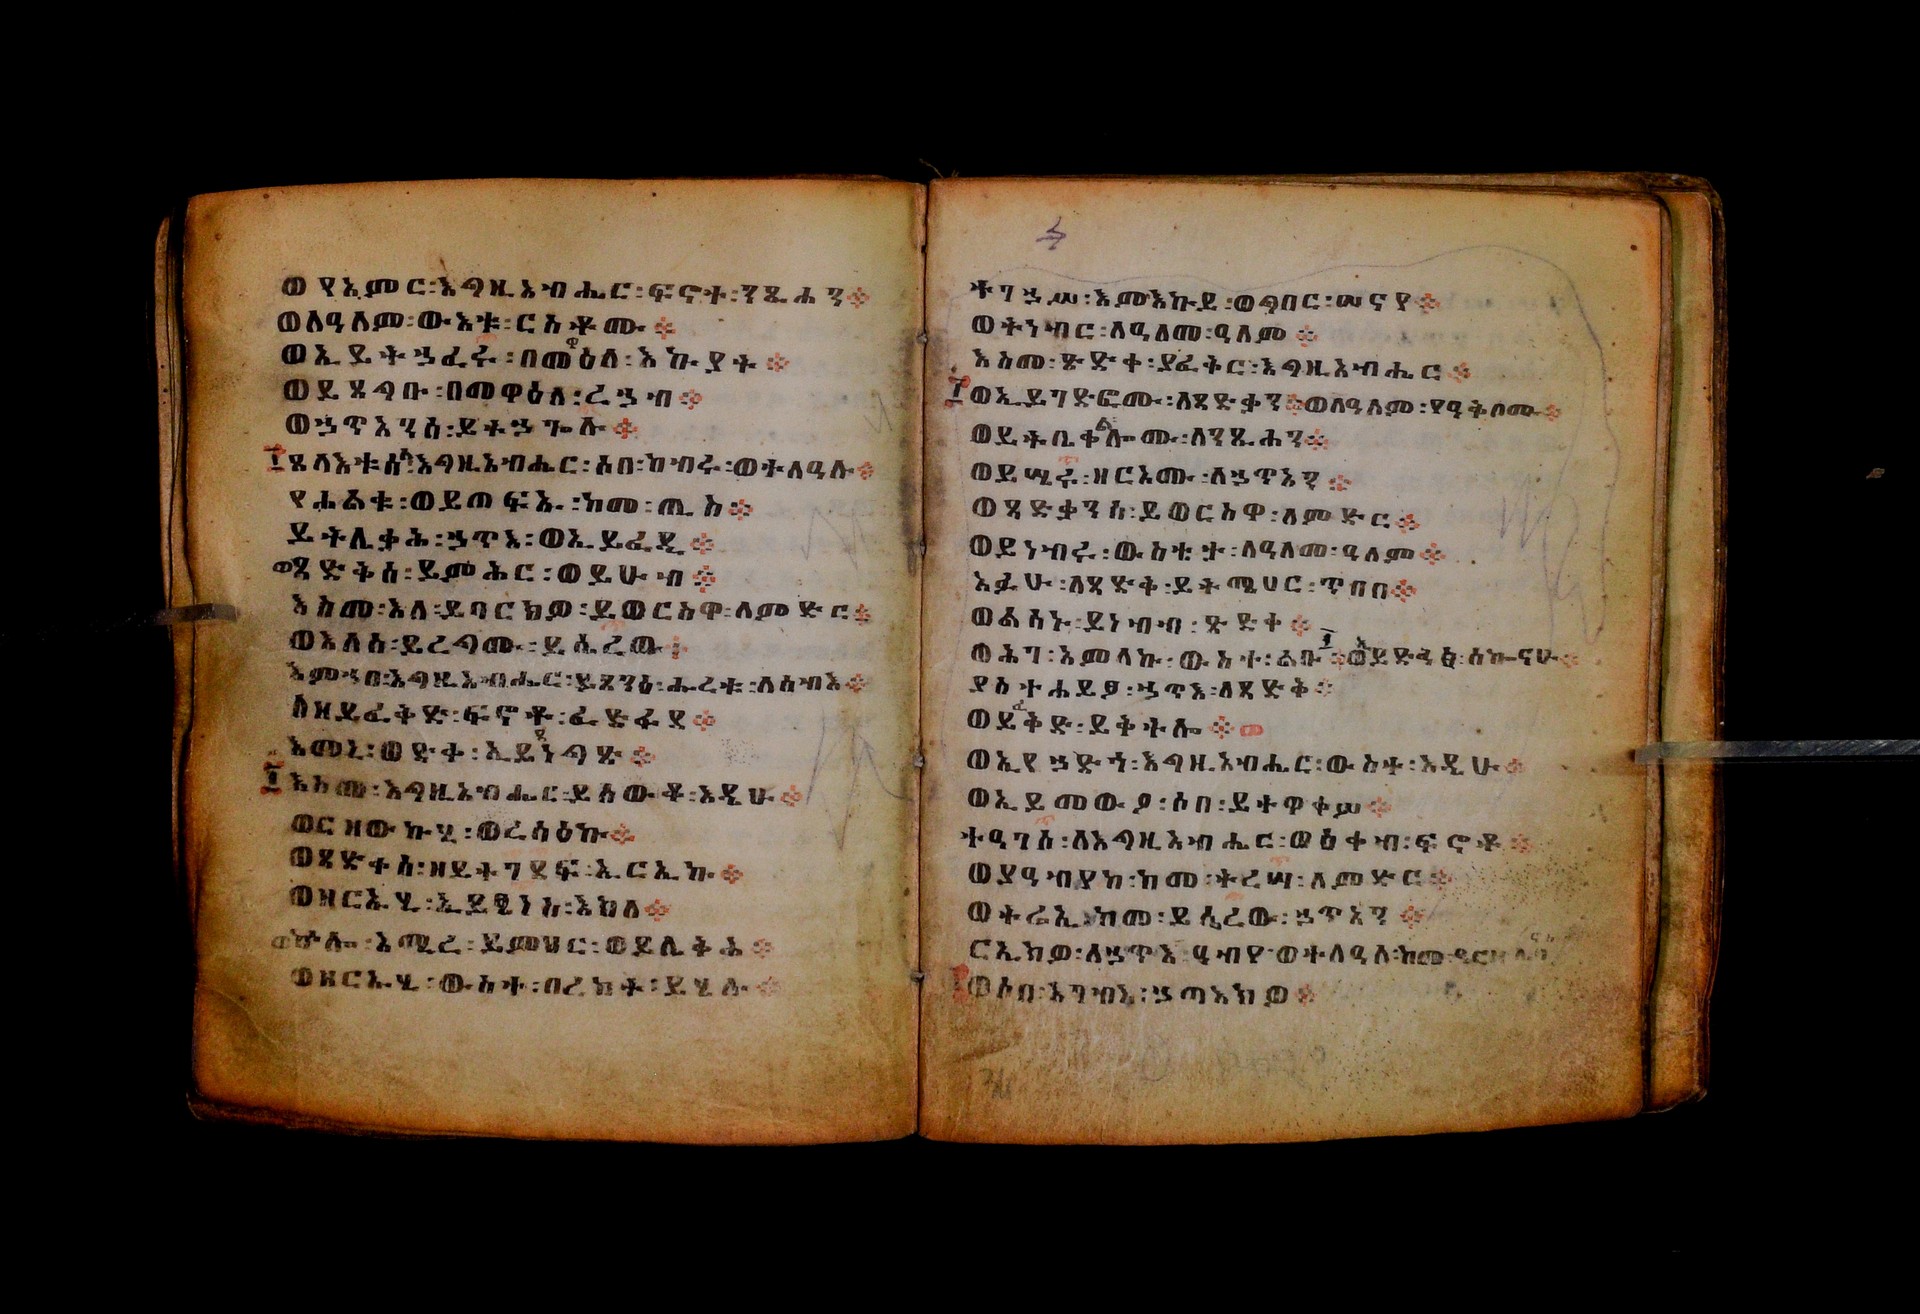 ወየአምር፡እግዚአብሔር፡ፍኖተ፡ንጹሐን፨
ወለዓለም፡ውእቱ፡ርስቶሙ፨
ወኢይትኃፈሩ፡በመዋዕለ፡እኩያት፨
ወይጸግቡ፡በመዋዕለ፡ረኃብ፨
ወኃጥእንሰ፡ይትኃጐሉ፨
ጸላእቱሰ፡ለእግዚአብሔር፡ሶበ፡ከብሩ፡ወተለዓሉ፨
የሐልቁ፡ወይጠፍኡ፡ከመ፡ጢስ፨
ይትሌቃሕ፡ኃጥእ፡ወኢይፈዲ፨
ወጻድቅሰ፡ይምሕር፡ወይሁብ፨
እስመ፡እለ፡ይባርክዎ፡ይወርስዋ፡ለምድር፨
ወእለሰ፡ይረግሙ፡ይሤረው፨
እምኀበ፡እግዚአብሔር፡ይጸንዕ፡ሑረቱ፡ለሰብእ፨
ለዘይፈቅድ፡ፍኖቶ፡ፈድፋደ፨
እመኒ፡ወድቀ፡ኢይደነግፅ፨
እስመ፡እግዚአብሔር፡ይሰውቆ፡እዲሁ፨
ወርዘውኩሂ፡ወረሳዕኩ፨
ወጻድቀሰ፡ዘይትገደፍ፡ኢርኢኩ፨
ወዘርኡሂ፡ኢይጼነስ፡እክለ፨
ወኵሎ፡አሚረ፡ይምህር፡ወይሌቅሕ፨
ወዘርኡሂ፡ውስተ፡በረከት፡ይሄሉ፨
ተገኃሥ፡እምእኩይ፡ወግበር፡ሠናየ፨
ወትነብር፡ለዓለመ፡ዓለም፨
እስመ፡ጽድቀ፡ያፈቅር፡እግዚአብሔር፨
ወኢይገድፎሙ፡ለጻድቃን፨ወለዓለም፡የዓቅቦሙ፨
ወይትቤቀሎሙ፡ለንጹሐን፨
ወይሤሩ፡ዘርኦሙ፡ለኃጥአን፨
ወጻድቃንሰ፡ይወርስዋ፡ለምድር፨
ወይነብሩ፡ውስቴታ፡ለዓለመ፡ዓለም፨
አፉሁ፡ለጻድቅ፡ይትሜሀር፡ጥበበ፨
ወልሳኑ፡ይነብብ፡ጽድቀ፨
ወሕገ፡አምላኩ፡ውስተ፡ልቡ፨ወኢይድኅፅ፡ሰኰናሁ፨
ያስተሐይፆ፡ኃጥእ፡ለጻድቅ፨
ወይፈቅድ፡ይቅትሎ፨
ወኢየኃድጎ፡እግዚአብሔር፡ውስተ፡እዲሁ፨
ወኢይመውዖ፡ሶበ፡ይትዋቀሥ፨
ተዓገሥ፡ለእግዚአብሔር፡ወዕቀብ፡ፍኖቶ፨
ወያዓብየከ፡ከመ፡ትረሣ፡ለምድር፨
ወትሬኢ፡ከመ፡ይሤረው፡ኃጥአን፨
ርኢክዎ፡ለኃጥእ፡ዓብየ፡ወተለዓለ፡ከመ፡ዓርዘ፡
ወሶበ፡እገብእ፡ኃጣእክዎ፨